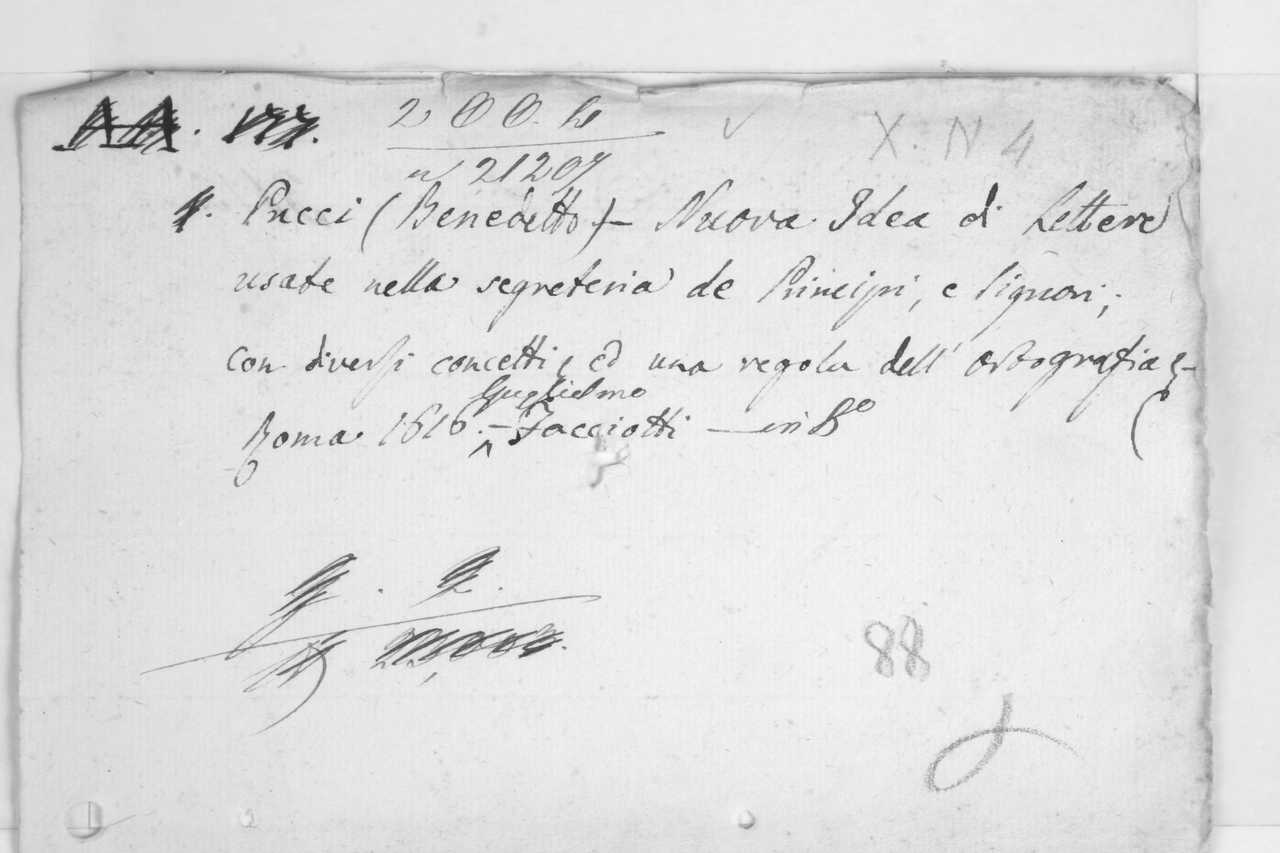 200. L
X. N 4
n 21209
Pucci (Benedetto) - Nuova Idea di Lettere
usate nella segreteria de Principi, e Signori;
con diversi concetti, ed una regola dell' ortografia,
Guglielmo
Roma 1616. - Facciotti — in 8º
88